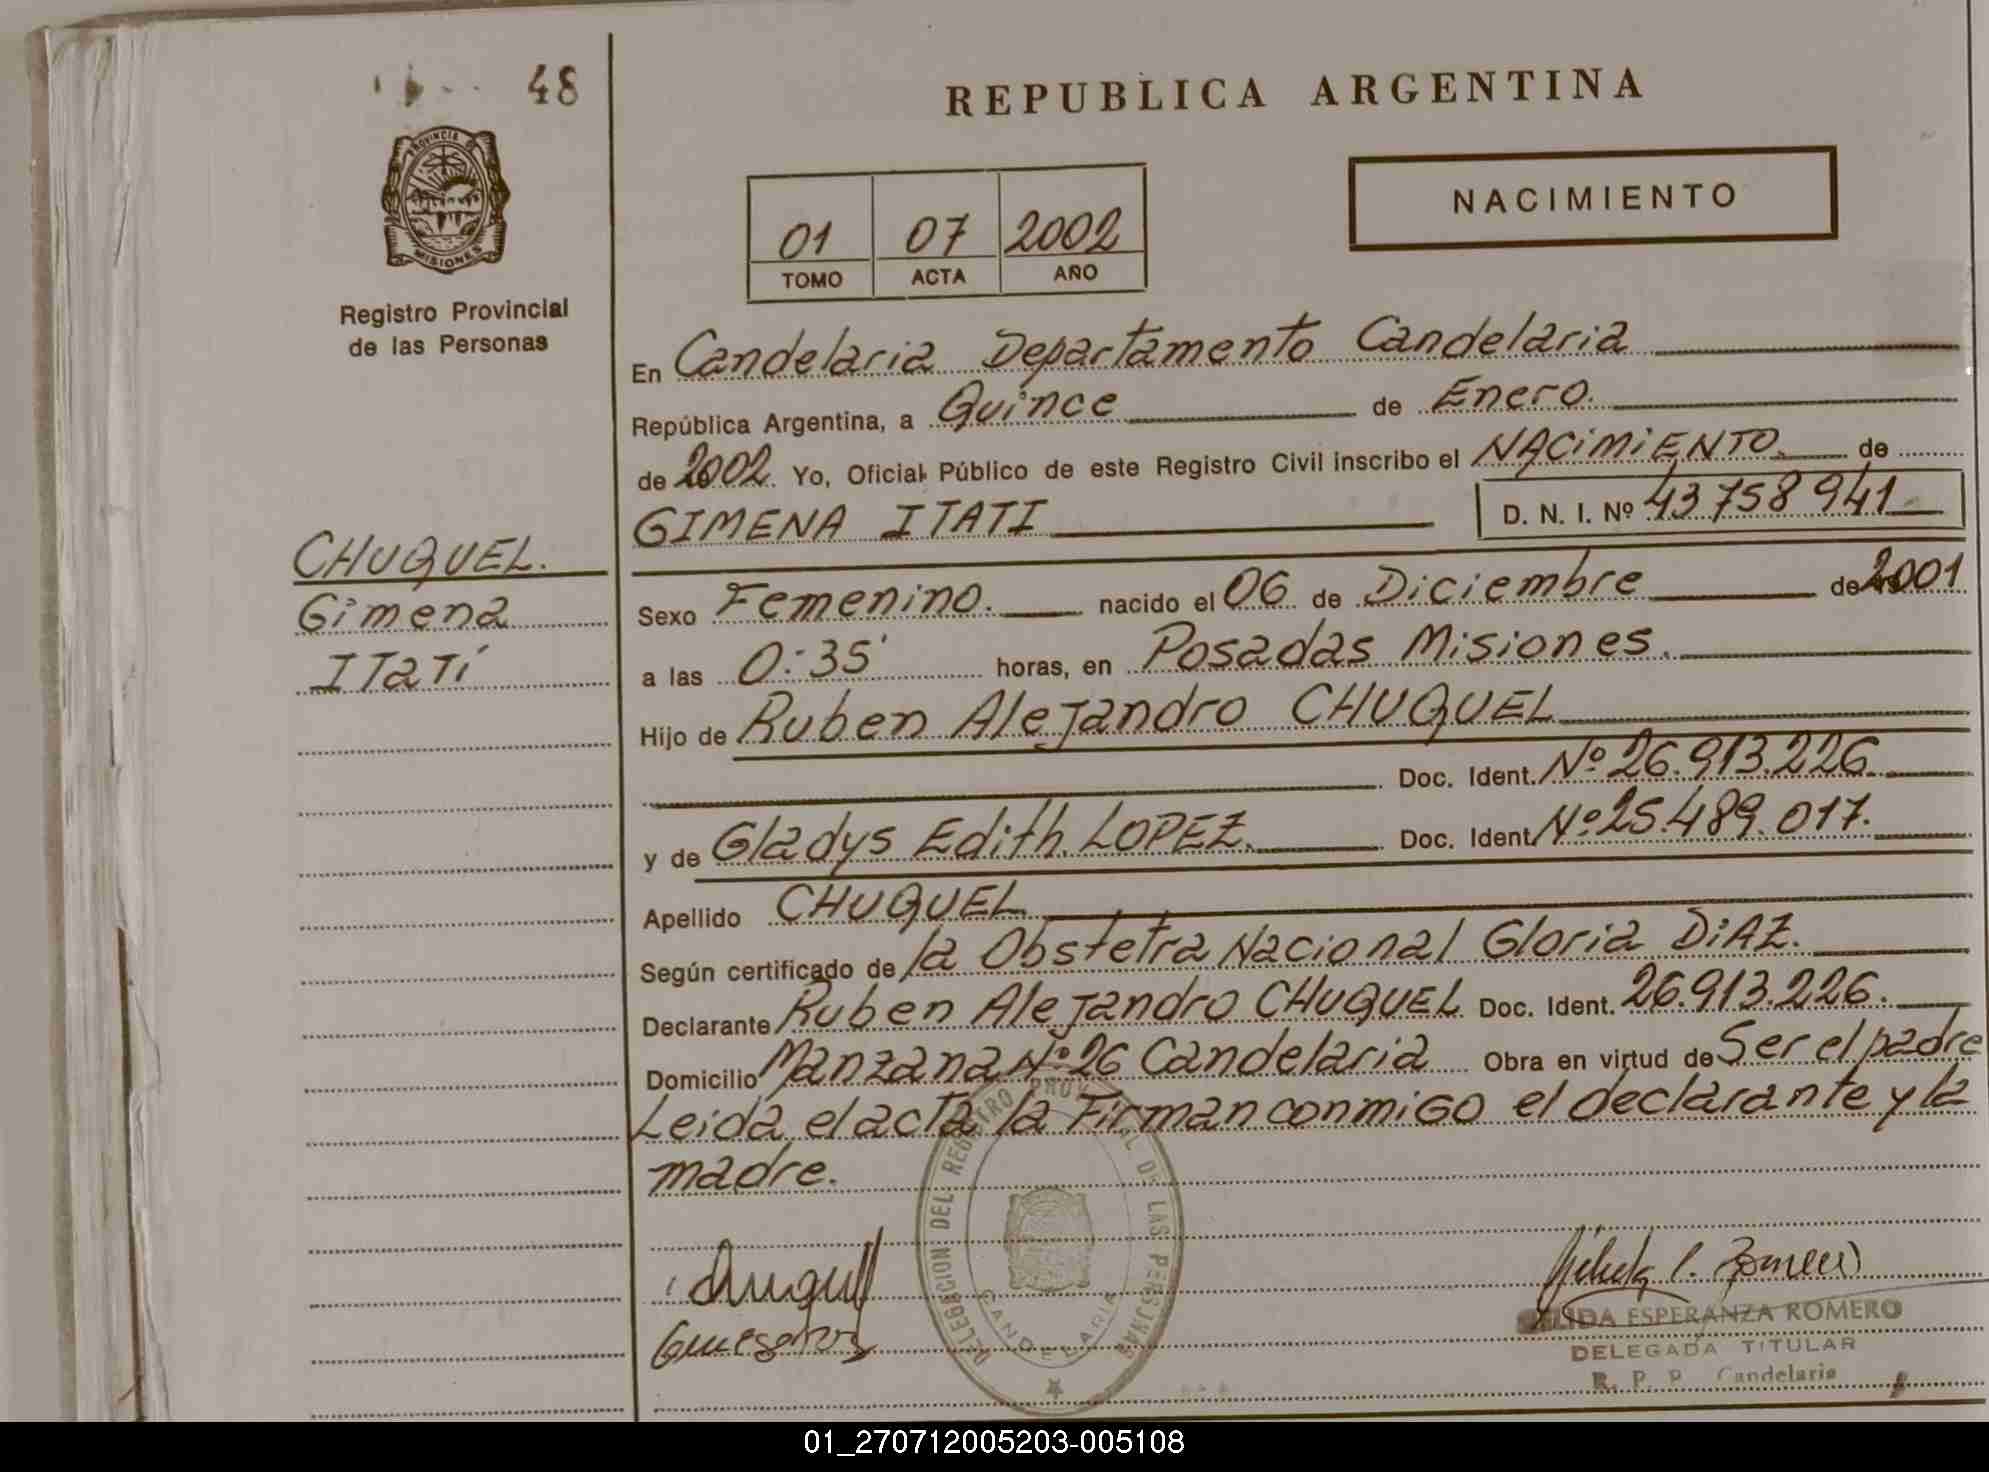 48
REPUBLICA ARGENTINA
PROVINCIA DE
MISIONES
Registro Provincial
de las Personas
NACIMIENTO
01 07 2002
TOMO ACTA AÑO
En Candelaria Departamento Candelaria
República Argentina, a Quince de Enero.
de 2002. Yo, Oficial Público de este Registro Civil inscribo el NACIMIENTO. de
GIMENA ITATI D. N. I. Nº 43758941
CHUQUEL.
Gimena
ITATÍ
Sexo Femenino. nacido el 06 de Diciembre de 2001
a las 0:35' horas, en Posadas Misiones.
Hijo de Ruben Alejandro CHUQUEL
Doc. Ident. Nº 26.913.226
y de Gladys Edith LOPEZ. Doc. Ident. Nº 25.489.017.
Apellido CHUQUEL
Según certificado de la Obstetra Nacional Gloria DiAZ.
Declarante Ruben Alejandro CHUQUEL Doc. Ident. 26.913.226.
Domicilio Manzana Nº 26 Candelaria Obra en virtud de Ser el padre
Leida el acta la Firman conmigo el declarante y la
madre.
DELEGACION DEL REGISTRO PROVINCIAL DE LAS PERSONAS
CANDELARIA
ESPERANZA ROMERO
DELEGADA TITULAR
R. P. P. Candelaria
01_270712005203-005108